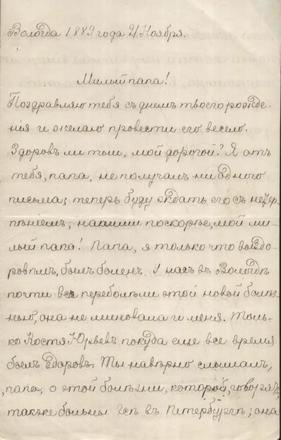 Вологда 1889 года 21 Ноября.
Милый папа!
Поздравляю тебя съ днемъ твоего рожде-
нія и желаю провести его весело.
Здоровъ ли ты, мой дорогой? Я отъ
тебя, папа, не получалъ ни одного
письма; теперь буду ждать его съ нетер-
пѣніемъ; напиши поскорѣе, мой ми-
лый папа! Папа, я только что выздо-
ровѣлъ, былъ боленъ. У насъ въ Вологдѣ
почти всѣ переболѣли этой новой болѣз-
нью, она не миновала и меня. Толь-
ко Костя Юрьевъ покуда еще все время
былъ здоровъ. Ты навѣрно слышалъ,
папа, о этой болѣзни, которой, говорятъ,
также больны въ Петербургѣ; она